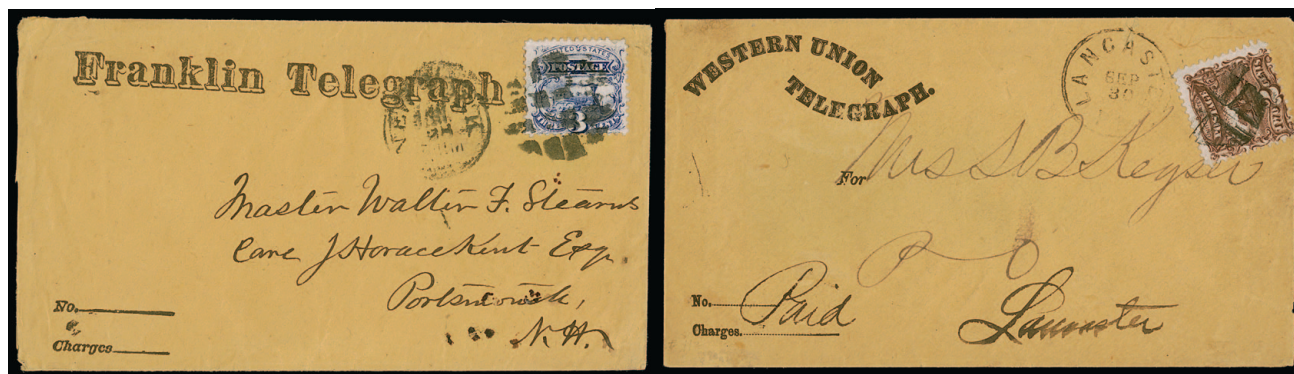 Franklin Telegraph
UNITED STATES
POSTAGE
3
NEW YORK
Master Walter F. Stearns
Care J Horace Kent Esq
Portsmouth,
N.H.
No.
Charges
WESTERN UNION
TELEGRAPH.
LANCAST
SEP
30
For Mrs S B Keyser
No. Paid
Charges.
Lancaster